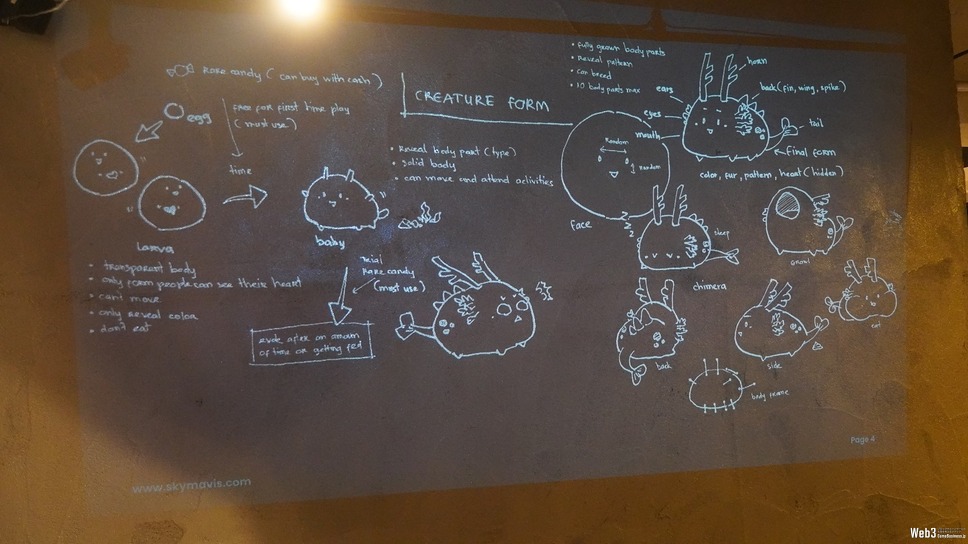 Rare candy ( can buy with cash )
egg
free for first time play
( must use )
time
CREATURE FORM
• fully grown body parts
• reveal pattern
• can breed
• 10 body parts max
horn
ears
back (fin, wing, spike)
eyes
mouth
tail
final form
color, fur, pattern, heart (hidden)
• Reveal body part (type)
• solid body
• can move and attend activities
Random
Random
face
baby
larva
• transparent body
• only foam people can see their heart
• can't move
• only reveal color
• don't eat
Rare candy
(must use)
evolve after an amount
of time or getting fed
z
z
z
sleep
growl
chimera
eat
back
side
body frame
Page 4
www.skymavis.com
Web3
GameBusiness.jp